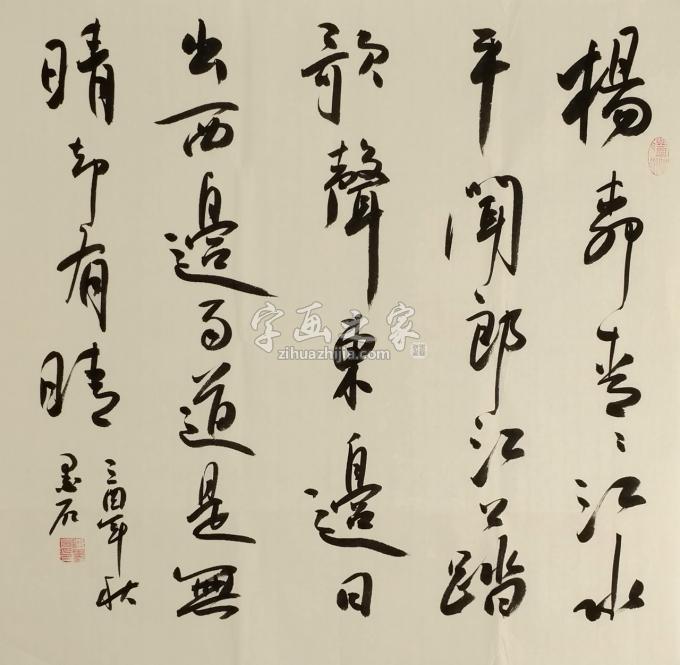 楊柳青々江水
平聞郎江上踏
歌聲東邊日
出西邊雨道是無
晴却有晴
酉年秋
墨石
字画之家
zihuazhijia.com